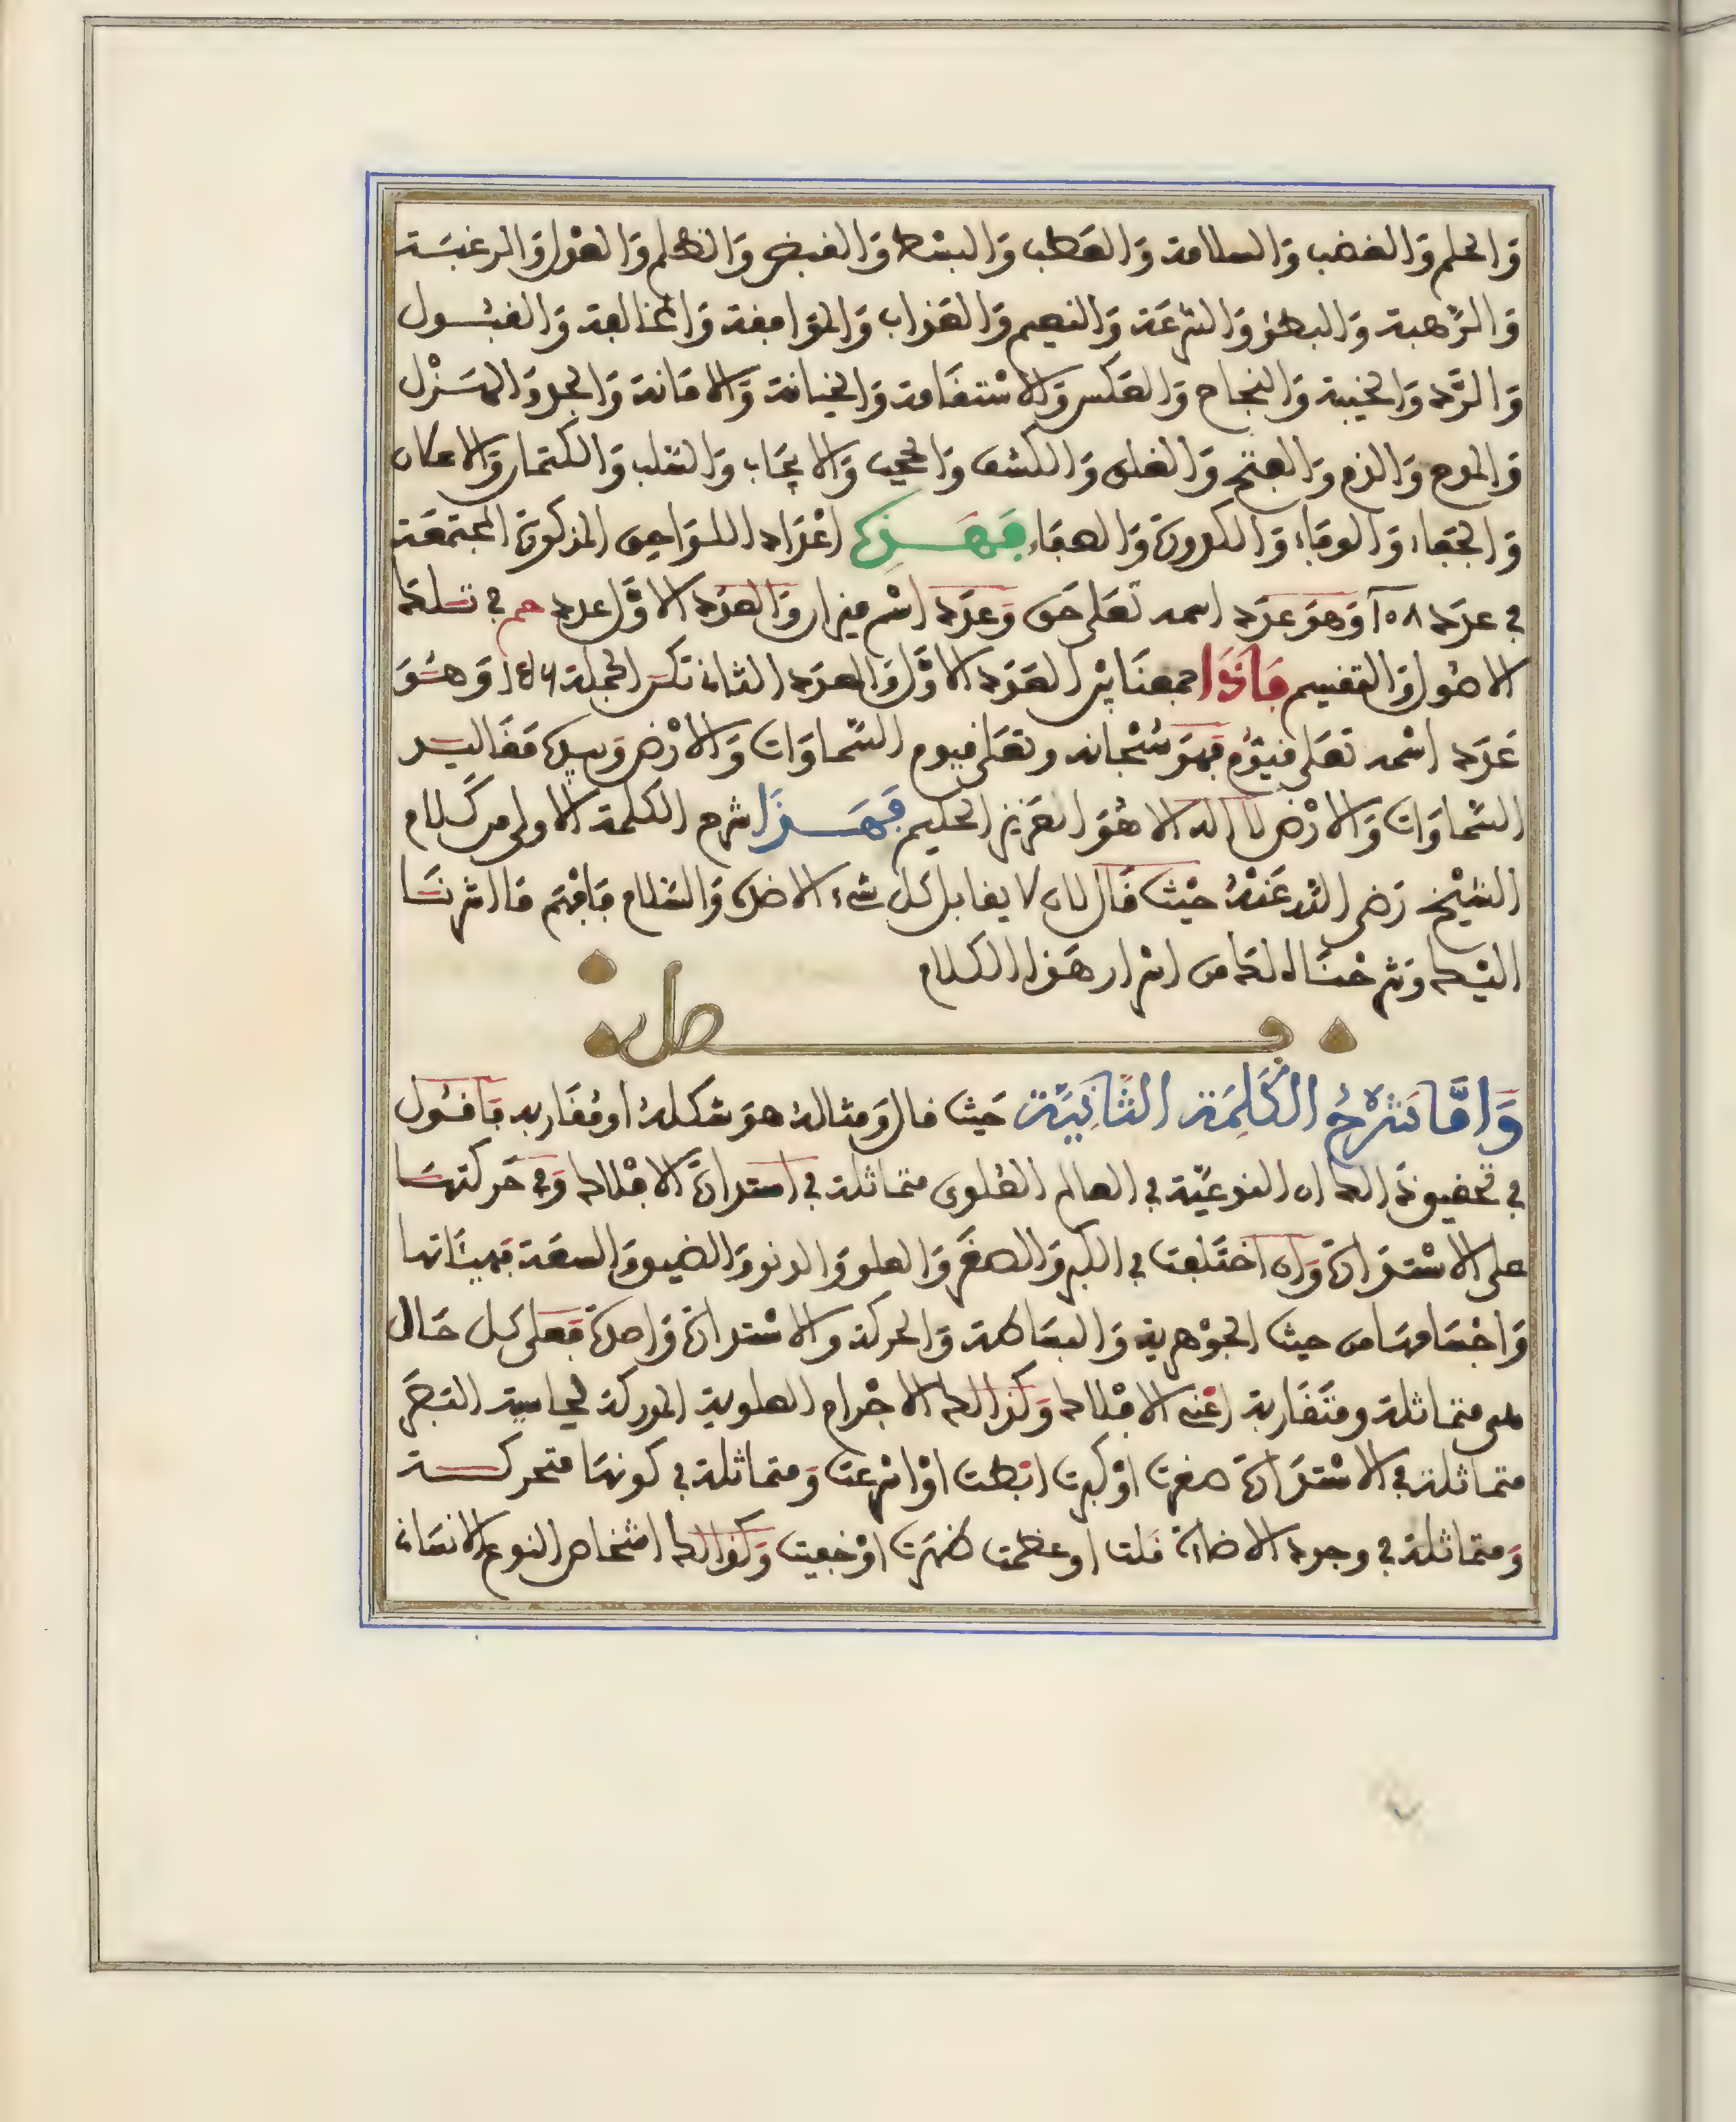 وَالحلم وَالغضب وَالسلامة وَالعَطب وَالبسْط وَالقبض وَالظلم وَالعدْل وَالرغبَة
وَالرَّهبة وَالبطؤ وَالسّرعَة وَالنعيم وَالعَذاب وَالموَافقة وَالمخالفة وَالقبُول
وَالرَّد وَالخيبة وَالنجاح وَالعَكس وَالاسْتقَامة وَالخيانة وَالامَانة وَالجد وَالهَزْل
وَالمدح وَالذم وَالفتح وَالغلق وَالكشف وَالحجب وَالايجَاب وَالسَّلب وَالكتمان وَالاعلان
وَالجفَاء وَالوفَاء وَالكدورة وَالصفَاء فَهَذِه اعْدَاد اللوَاحق المذكورة المجتمعَة
في عدَد ١٥٨ وَهوَ عدَد اسمه تعَلى حَق وَعدَد اسْم ميزان وَالعدَد الاوَّل عدد حم في تسلط
الاصُول وَالتقسيم فَاذَا جمعنَا بيْن العَدَد الاوَّل وَالعدَد الثاني تكن الجملة ١٥٦ وَهُوَ
عَدَد اسْمه تعَلى قيّوُم فهوَ سُبْحانه وتعَلى قيوم السَّماوَات وَالارْض وَبيده مقَاليد
السَّماوَات وَالارْض لا اله الا هُوَ العَزيز الحكيم فَهَذَا شرح الكلمة الاولى من كَلام
الشيْخ رَضي الله عَنْهُ حيْث قَال لان لا يقابل كل شيء الا ضده وَالسَّلام فَافهَم مَا اشرنَا
اليْك وَشرحْنَا لك من اسْرار هَذا الكلام
فصل
وَامَّا شَرْحُ الكَلِمَة الثَّانِيَة حَيث قال وَمثالهُ هوَ شكلهُ او مُقَاربه فَاقُول
في تحقيق ذلك ان النوعيّة في العالم العُلوي متماثلة في استدارَة الافلاك وَفي حَركتهَا
على الاسْتدَارَة وَان اختَلفت في الكبر وَالصغَر وَالعلو وَالدنو وَالضيق وَالسعَة فهيئاتها
وَاجْسَامهَا من حيث الجوْهرية وَالبسَاطة وَالحركة وَالاسْتدارَة وَاحدَة فَعلى كل حَال
هي متماثلة ومتقَاربة اعْني الافلاك وَكذالك الاجْرام العلوية المدركة لحاسة البَصَر
متماثلة في الاسْتدَارَة صغرت اوْ كبرت ابْطت اوْ اسْرعَت وَمتماثلة في كونهَا متحركة
وَمتماثلة في وجود الاضاءة قلت او عظمت ظهَرَت اوْ خفيت وَكذالك اشخاص النوع الانسَاني